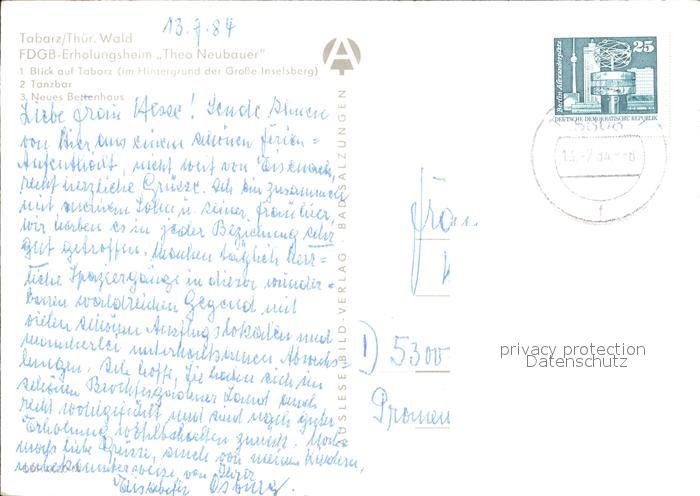 13.7.84
Tabarz/Thür. Wald
FDGB-Erholungsheim „Theo Neubauer"
1 Blick auf Tabarz (im Hintergrund der Große Inselsberg)
2 Tanzbar
3. Neues Bettenhaus
Liebe Frau Hesse! Sende Ihnen
von hier aus einem schönen Ferien=
Aufenthalt, nicht weit von Eisenach,
recht herzliche Grüsse. Ich bin zusammen
mit meinem Sohn u. seiner Frau hier,
wir haben es in jeder Beziehung sehr
gut getroffen. Machen täglich herr=
liche Spaziergänge in dieser wunder=
baren waldreichen Gegend mit
vielen schönen Ausflugslokalen und
mancherlei unterhaltsamen Abwechs=
lungen. Ich hoffe, Sie haben sich im
schönen Berchtesgadener Land auch
recht wohlgefühlt und sind nach guter
Erholung wohlbehalten zurück. Noch=
mals liebe Grüsse, auch von meinen Kindern,
unbekannterweise, von Ihrer
Elisabeth
AUSLESE-BILD-VERLAG · BAD SALZUNGEN
25
Berlin, Alexanderplatz
DEUTSCHE DEMOKRATISCHE REPUBLIK
Frau
5300
Promen
privacy protection
Datenschutz